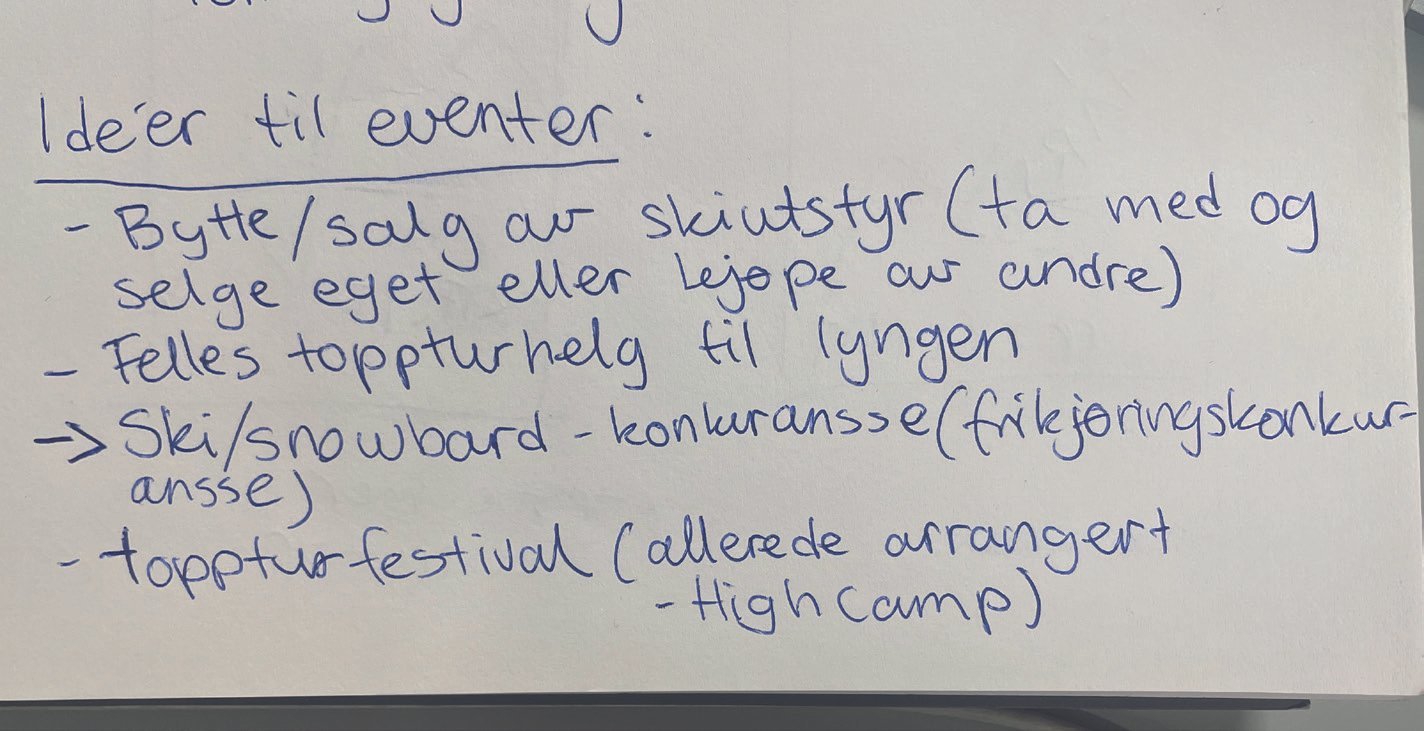 Idéer til eventer:
- Bytte/salg av skiutstyr (ta med og
selge eget eller kjøpe av andre)
- Felles topptur helg til lyngen
-> Ski/snowboard - konkuransse (frikjøringskonkur-
ansse)
- topptur festival (allerede arrangert
- High Camp)